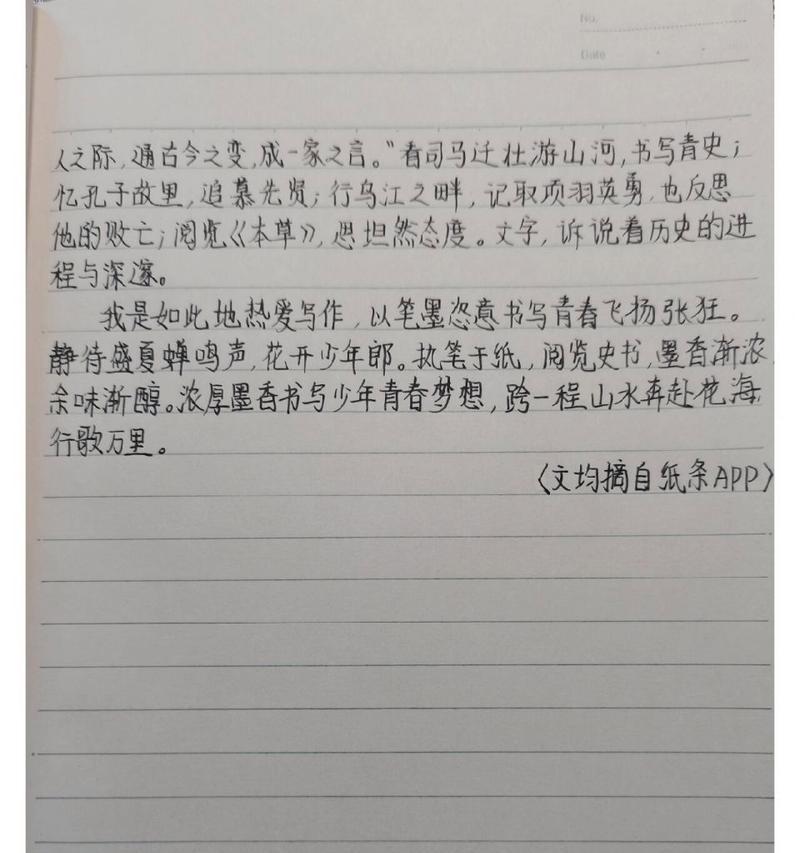 No.
Date
人之际,通古今之变,成一家之言。"看司马迁壮游山河,书写青史;
忆孔子故里,追慕先贤;行乌江之畔,记取项羽英勇,也反思
他的败亡;阅览《本草》,思坦然态度。文字,诉说着历史的进
程与深邃。
我是如此地热爱写作,以笔墨恣意书写青春飞扬张狂。
静待盛夏蝉鸣声,花开少年郎。执笔于纸,阅览史书,墨香渐浓,
余味渐醇。浓厚墨香书写少年青春梦想,跨一程山水奔赴花海,
行歌万里。
〈文均摘自纸条APP〉